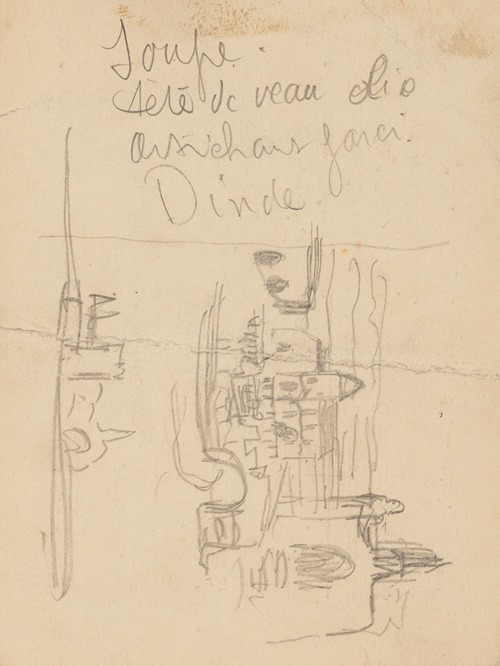 Soupe.
tété de veau
artichaux farci.
Dinde